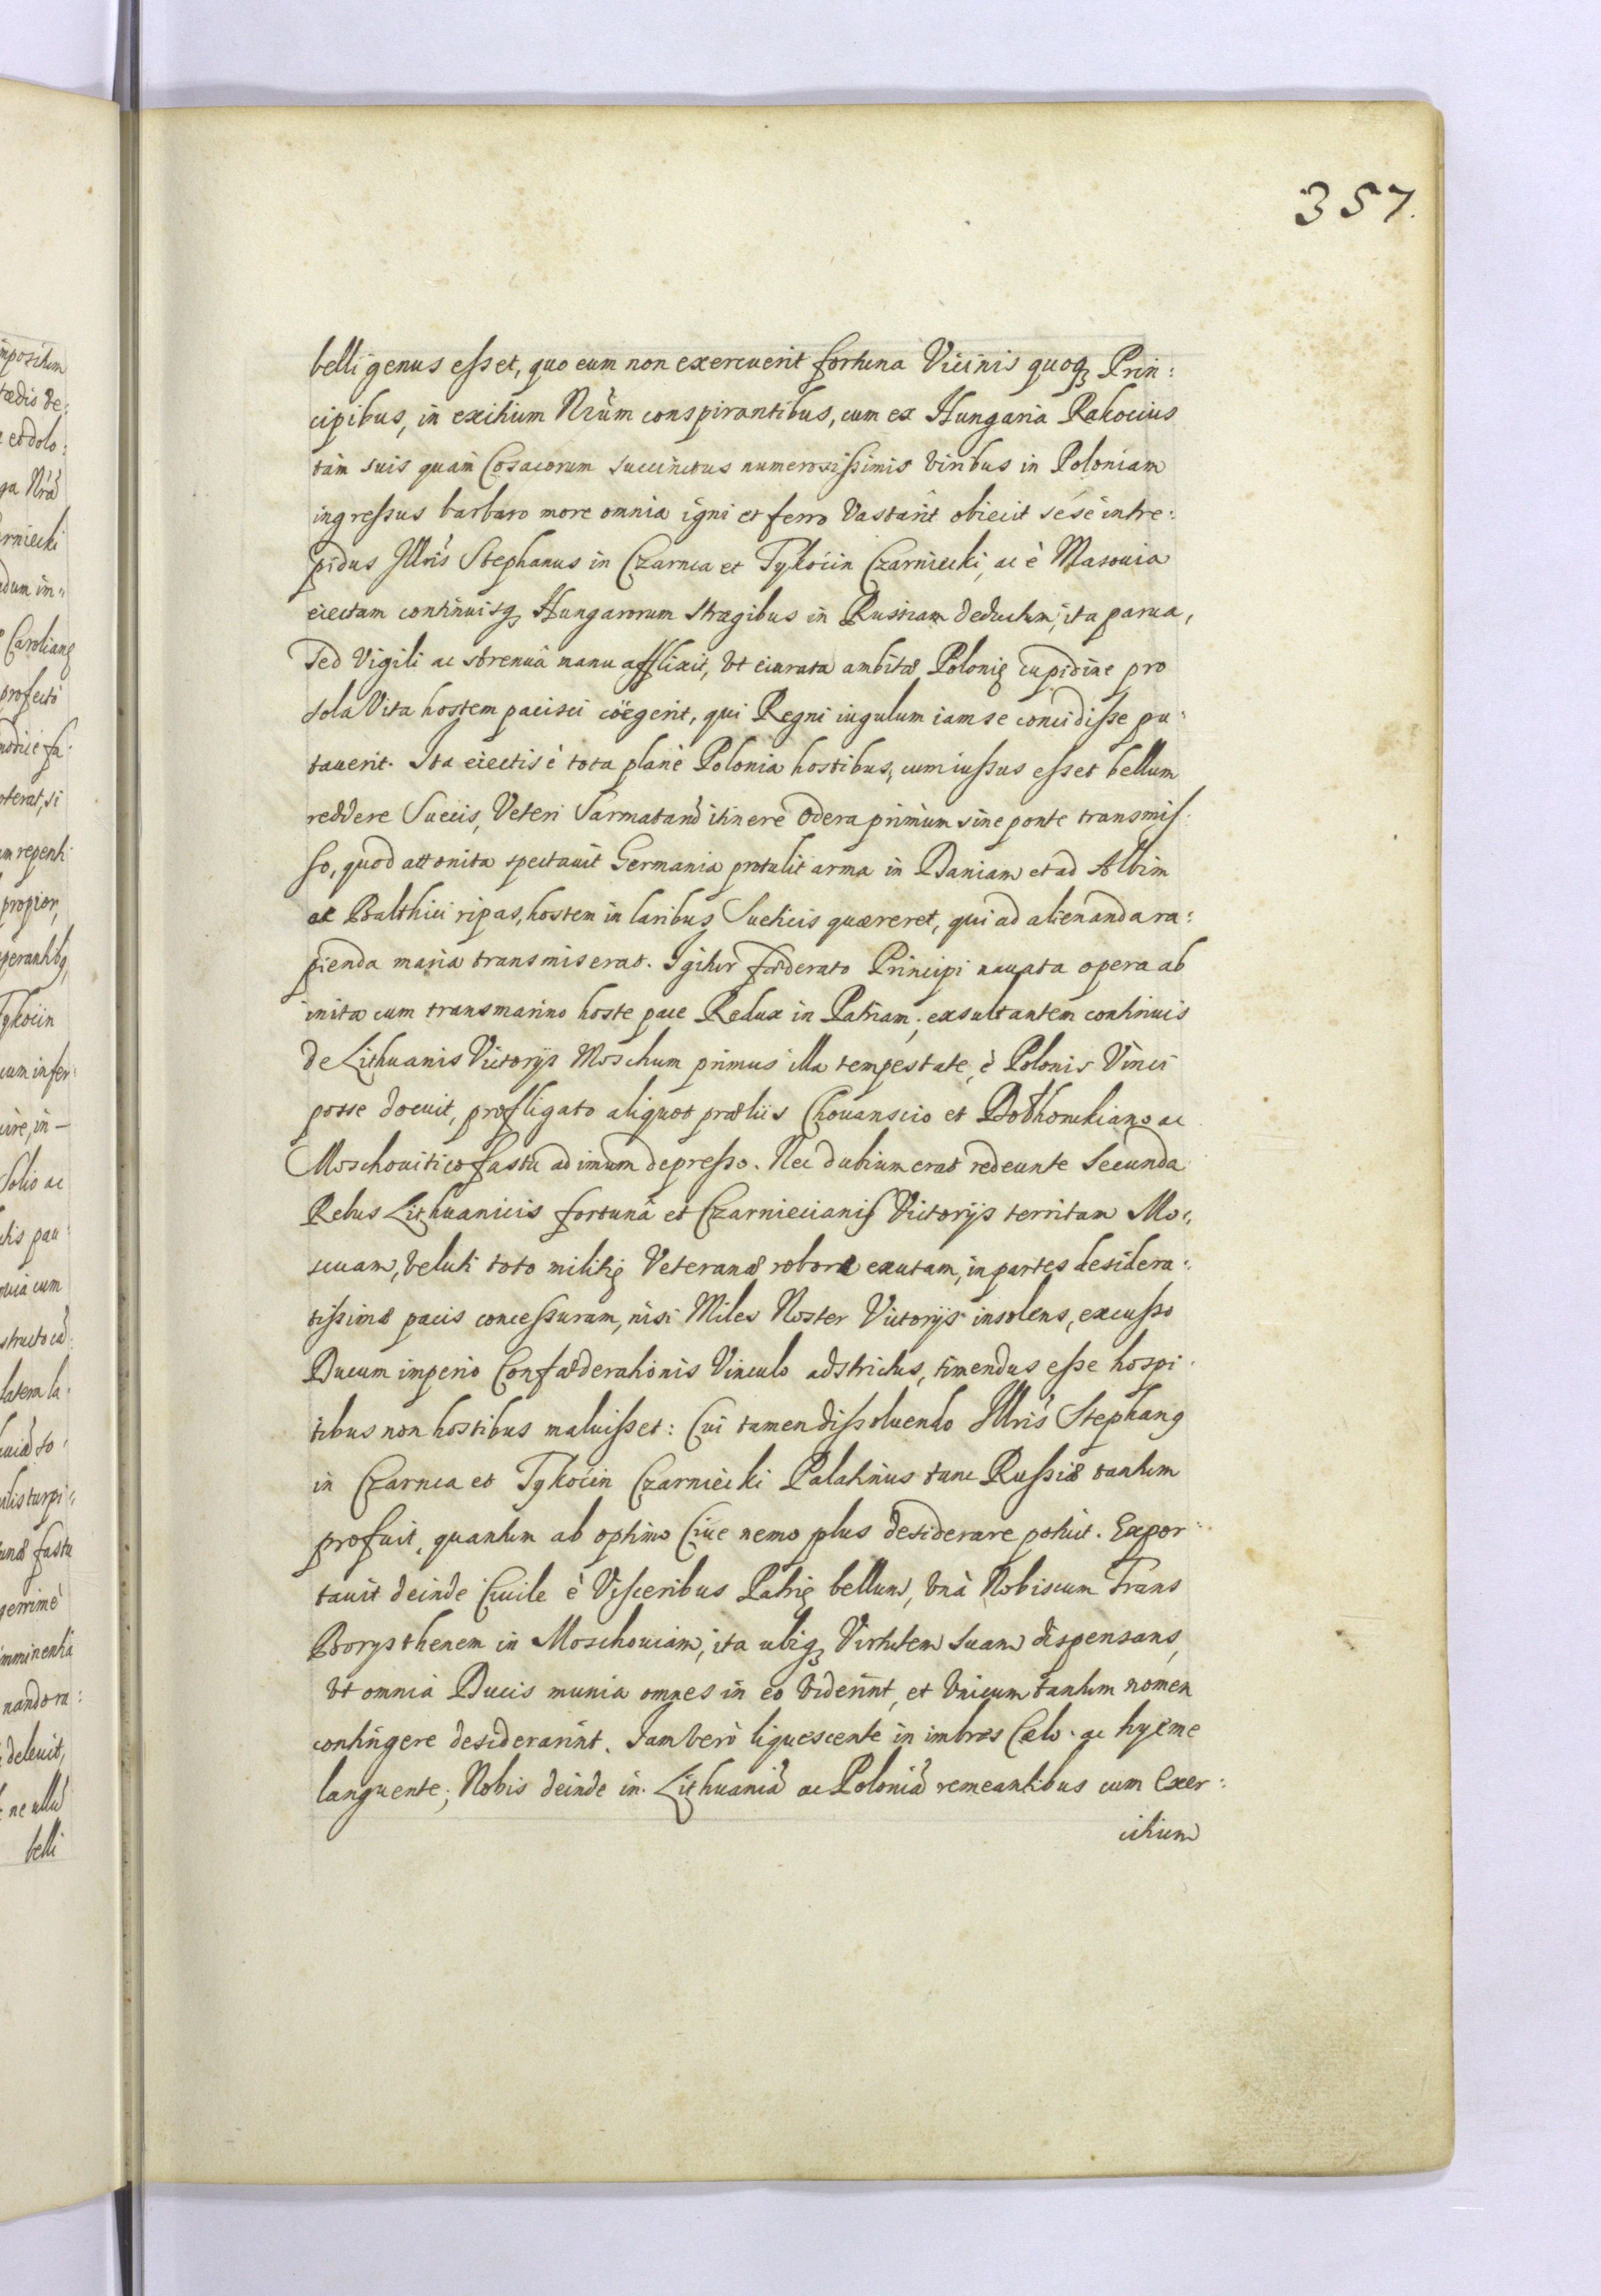 357.
belli genus esset, quo eum non exercuerit fortuna Vicinis quoq₃ Prin:
cipibus, in exitium Nrũm conspirantibus, cum ex Hungaria Rakocius
tàm suis quàm Cosacorum succinctus numerosissimis viribus in Poloniam
ingressus barbaro more omnia igni et ferro Vastarit obiecit sésé intre:
pidus Jllris Stephanus in Czarnca et Tykocin Czarniecki, ac è Masouia
eiectam continuisq₃ Hungarorum stragibus in Russiam deductum, ita parua,
sed Vigili ac strenuâ manu afflixit, Vt eiurata ambitæ Polonię cupidine pro
sola Vita hostem pacisci cöegerit, qui Regni iugulum iam se concidisse pu:
tauerit. Ita eiectis è tota planè Polonia hostibus, cum iussus esset bellum
reddere Suecis, Veteri Sarmatarũ itinere Odera primùm sine ponte transmis:
so, quod attonita spectauit Germania protulit arma in Daniam et ad Albim
ac Balthici ripas, hostem in laribus Suecicis quæreret, qui ad alienanda ra:
pienda maria transmiserat. Igitur fœderato Principi nauata opera ab
inita cum transmarino hoste pace Redux in Patriam, exsultantem continuis
de Lithuanis Victorijs Moschum primus illa tempestate, è Polonis Vinci
posse docuit, profligato aliquot præliis Chouanscio et Dolhorukiano ac
Moschouitico fastu ad imum depresso. Nec dubium erat redeunte secunda
Rebus Lithuanicis fortunâ et Czarniecianis Victorijs territam Mo:
scuam, veluti toto militię Veteranæ robore exutam, in partes desidera:
tissimæ pacis concessuram, nisi Miles Noster Victorijs insolens, excusso
Ducum imperio Confœderationis Vinculo adstrictus, timendus esse hospi:
tibus non hostibus maluisset: Cui tamen dissoluendo Jllris Stephanus
in Czarnca et Tykocin Czarniecki Palatinus tunc Russiæ tantum
profuit, quantum ab optimo Ciue nemo plus desiderare potuit. Expor:
tauit deinde Ciuile è Visceribus Patrię bellum, vnà Nobiscum Trans
Borysthenem in Moschouiam, ita ubiq₃ Virtutem suam dispensans,
vt omnia Ducis munia omnes in eo viderint, et vnicum tantum nomen
contingere desiderarint. Iam verò liquescente in imbres Cælo ac hyeme
languente, Nobis deinde in Lithuaniã ac Poloniã remeantibus cum Exer:
citium